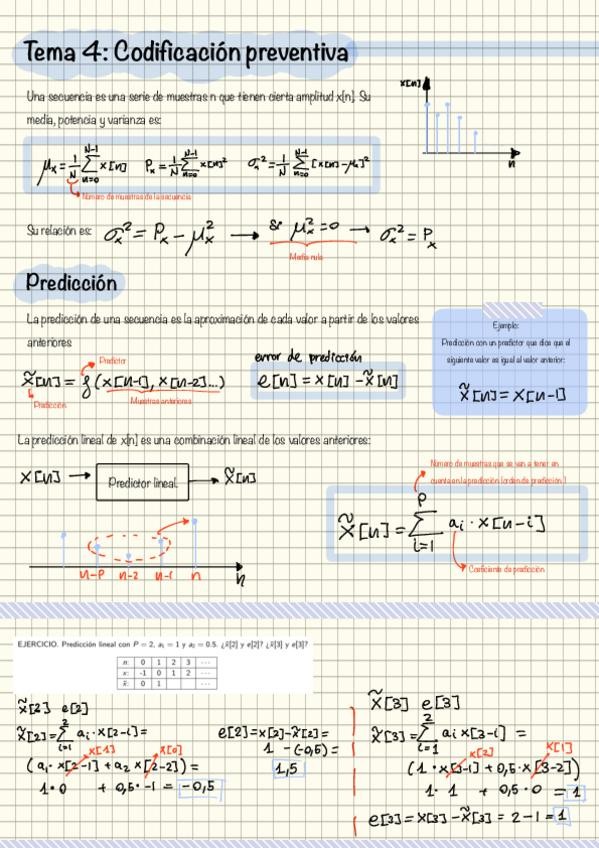 Tema 4: Codificación preventiva
Una secuencia es una serie de muestras n que tienen cierta amplitud x[n]. Su
media, potencia y varianza es:
x[n]
n
μx = 1/N ∑_{n=0}^{N-1} x[n]   Px = 1/N ∑_{n=0}^{N-1} x[n]²   σx² = 1/N ∑_{n=0}^{N-1} [x[n]-μx]²
Número de muestras de la secuencia
Su relación es: σx² = Px - μx² → & μx² = 0 → σx² = Px
Media nula
Predicción
La predicción de una secuencia es la aproximación de cada valor a partir de los valores
anteriores
Predictor
x̃[n] = f(x[n-1], x[n-2]...)
Predicción
Muestras anteriores
error de predicción
e[n] = x[n] - x̃[n]
Ejemplo:
Predicción con un predictor que dice que el
siguiente valor es igual al valor anterior:
x̃[n] = x[n-1]
La predicción lineal de x[n] es una combinación lineal de los valores anteriores:
x[n] → Predictor lineal → x̃[n]
Número de muestras que se van a tener en
cuenta en la predicción (orden de predicción)
x̃[n] = ∑_{i=1}^{P} ai · x[n-i]
Coeficiente de predicción
n-P n-2 n-1 n n
EJERCICIO. Predicción lineal con P = 2, a₁ = 1 y a₂ = 0.5. ¿x̃[2] y e[2]? ¿x̃[3] y e[3]?
n: 0 1 2 3 ...
x: -1 0 1 2 ...
x̃: 0 1
x̃[2] e[2]
x̃[2] = ∑_{i=1}^{2} ai · x[2-i] =
x[1] x[0]
(a₁ · x[2-1] + a₂ x[2-2]) =
1 · 0 + 0,5 · -1 = -0,5
e[2] = x[2] - x̃[2] =
1 - (-0,5) =
1,5
x̃[3] e[3]
x̃[3] = ∑_{i=1}^{2} ai x[3-i] =
x[2] x[1]
(1 · x[3-1] + 0,5 · x[3-2])
1 · 1 + 0,5 · 0 = 1
e[3] = x[3] - x̃[3] = 2 - 1 = 1